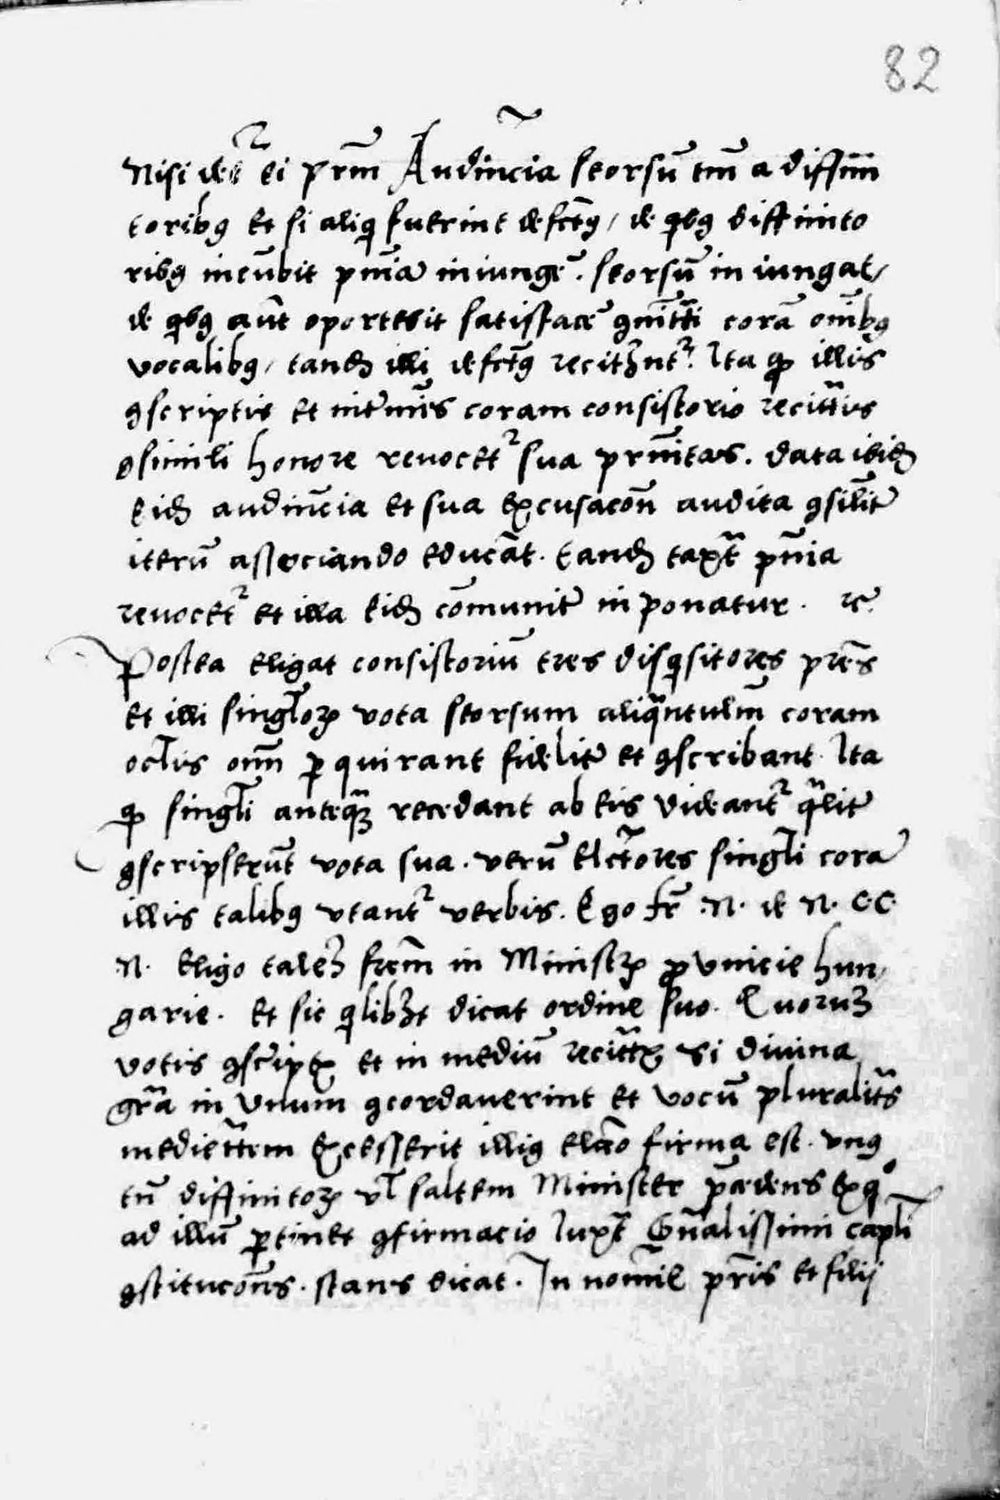 82
Nisi detr ei prīm Audincīa seorsū tm̄ a diffini
toribꝰ et si aliq̄ fuerint defctꝰ / de qibꝰ diffinito
ribꝰ incūbit pn̄ia iniungē. seorsū in iungat /
de qibꝰ aūt oportebit satisfacē ꝯmītti corā omībꝰ
vocalibꝰ / tandē illi defctꝰ recitēntr. Ita ꝙ illis
ꝯscriptis et intermis coram consistorio recitatis
ꝯsimili honore revocetr sua prn̄itas. data ibidē
Eidē audiēncia et sua excusacōn audita ꝯsilitē
iterū associando educāt. tandē taxāt pn̄ia
revocetr et illa Eidē cōmunitē inponatur. rc.
Postea eligat consistoriū tres disqisitores prēs
et illi singlōꝝ vota seorsum aliqāntulm̄ coram
oclīs om̄m ꝑquirant fidelitē et ꝯscribant. Ita
ꝙ singl̄i anteqꝫ recedant ab eis videantr qālitē
ꝯscripserūt vota sua. verū elctōres singl̄i corā
illis talibꝰ vtantr verbis. Ego fr̄ .N. de N. CC
.N. eligo talēꝫ frēm in Ministꝝ ꝓvincie hun,
garie. Et sic qilibꝫt dicat ordine suo. Quoruꝫ
votis ꝯscriptꝭ et in mediū recitatꝭ si divina
grā in vnum ꝯcordaverint et vocū pluralitās
medietātem excesserit illiꝰ elcāo firma est. vnꝰ
tn̄ diffinitoꝝ vl̄ saltem Minister pcēdens exqo
ad illū ꝑtinet ꝯfirmacio Iuxt̄ Gn̄alissimi capl̄i
ꝯstitucōnes. stans dicat. In nomīe pr̄is et filij